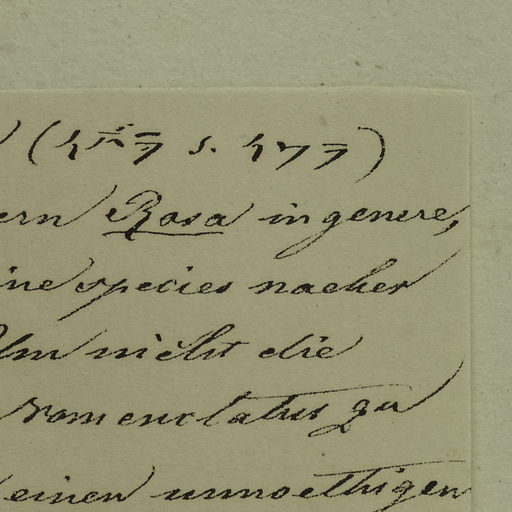 ern Rosa in genere,
ine species naeher
Um nicht die
nomenclatus zu
einen unnoethigen